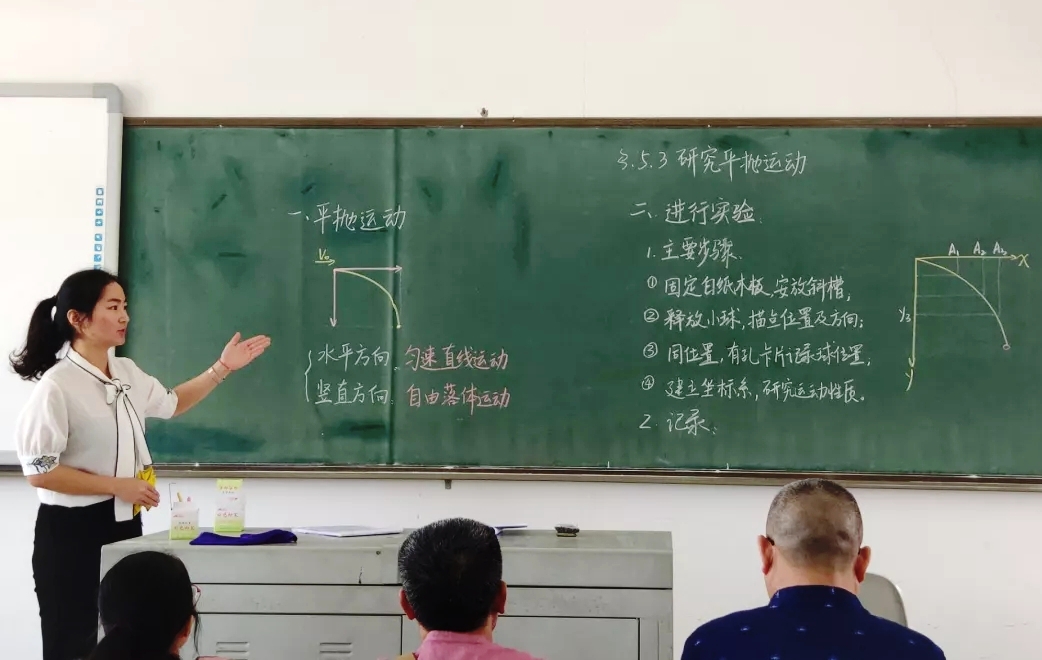 一、平抛运动
V₀
水平方向、匀速直线运动
竖直方向、自由落体运动
§.5.3 研究平抛运动
二、进行实验.
1.主要步骤.
① 固定白纸木板,安放斜槽,
② 释放小球,描点位置及方向;
③ 同位置,有孔卡片记录球位置;
④ 建立坐标系,研究运动性质。
2.记录:
A₁ A₂ A₃ X
y₃
y